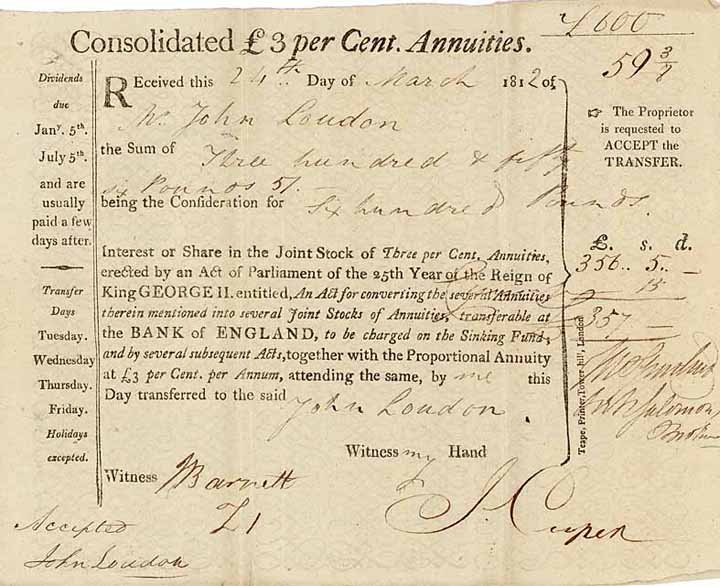 £600
Consolidated £3 per Cent. Annuities.
59 3/8
Dividends
due
Janʸ. 5th.
July 5th.
and are
usually
paid a few
days after.
Transfer
Days
Tuesday.
Wednesday
Thursday.
Friday.
Holidays
excepted.
REceived this 24th Day of March 1812 of
Mr John Loudon
the Sum of Three hundred & fifty
six Pounds 5/.
being the Consideration for Six hundred Pounds.
Interest or Share in the Joint Stock of Three per Cent. Annuities,
erected by an Act of Parliament of the 25th Year of the Reign of
King GEORGE II. entitled, An Act for converting the several Annuities
therein mentioned into several Joint Stocks of Annuities, transferable at
the BANK of ENGLAND, to be charged on the Sinking Fund;
and by several subsequent Acts, together with the Proportional Annuity
at £3 per Cent. per Annum, attending the same, by me this
Day transferred to the said
John Loudon
Witness my Hand
Witness Barnett
J. Cuper
☞ The Proprietor
is requested to
ACCEPT the
TRANSFER.
£. s. d.
356.. 5.. —
15
357 —
Salomon
Broker
Teape, Printer, Tower-hill, London
Accepted
John Loudon